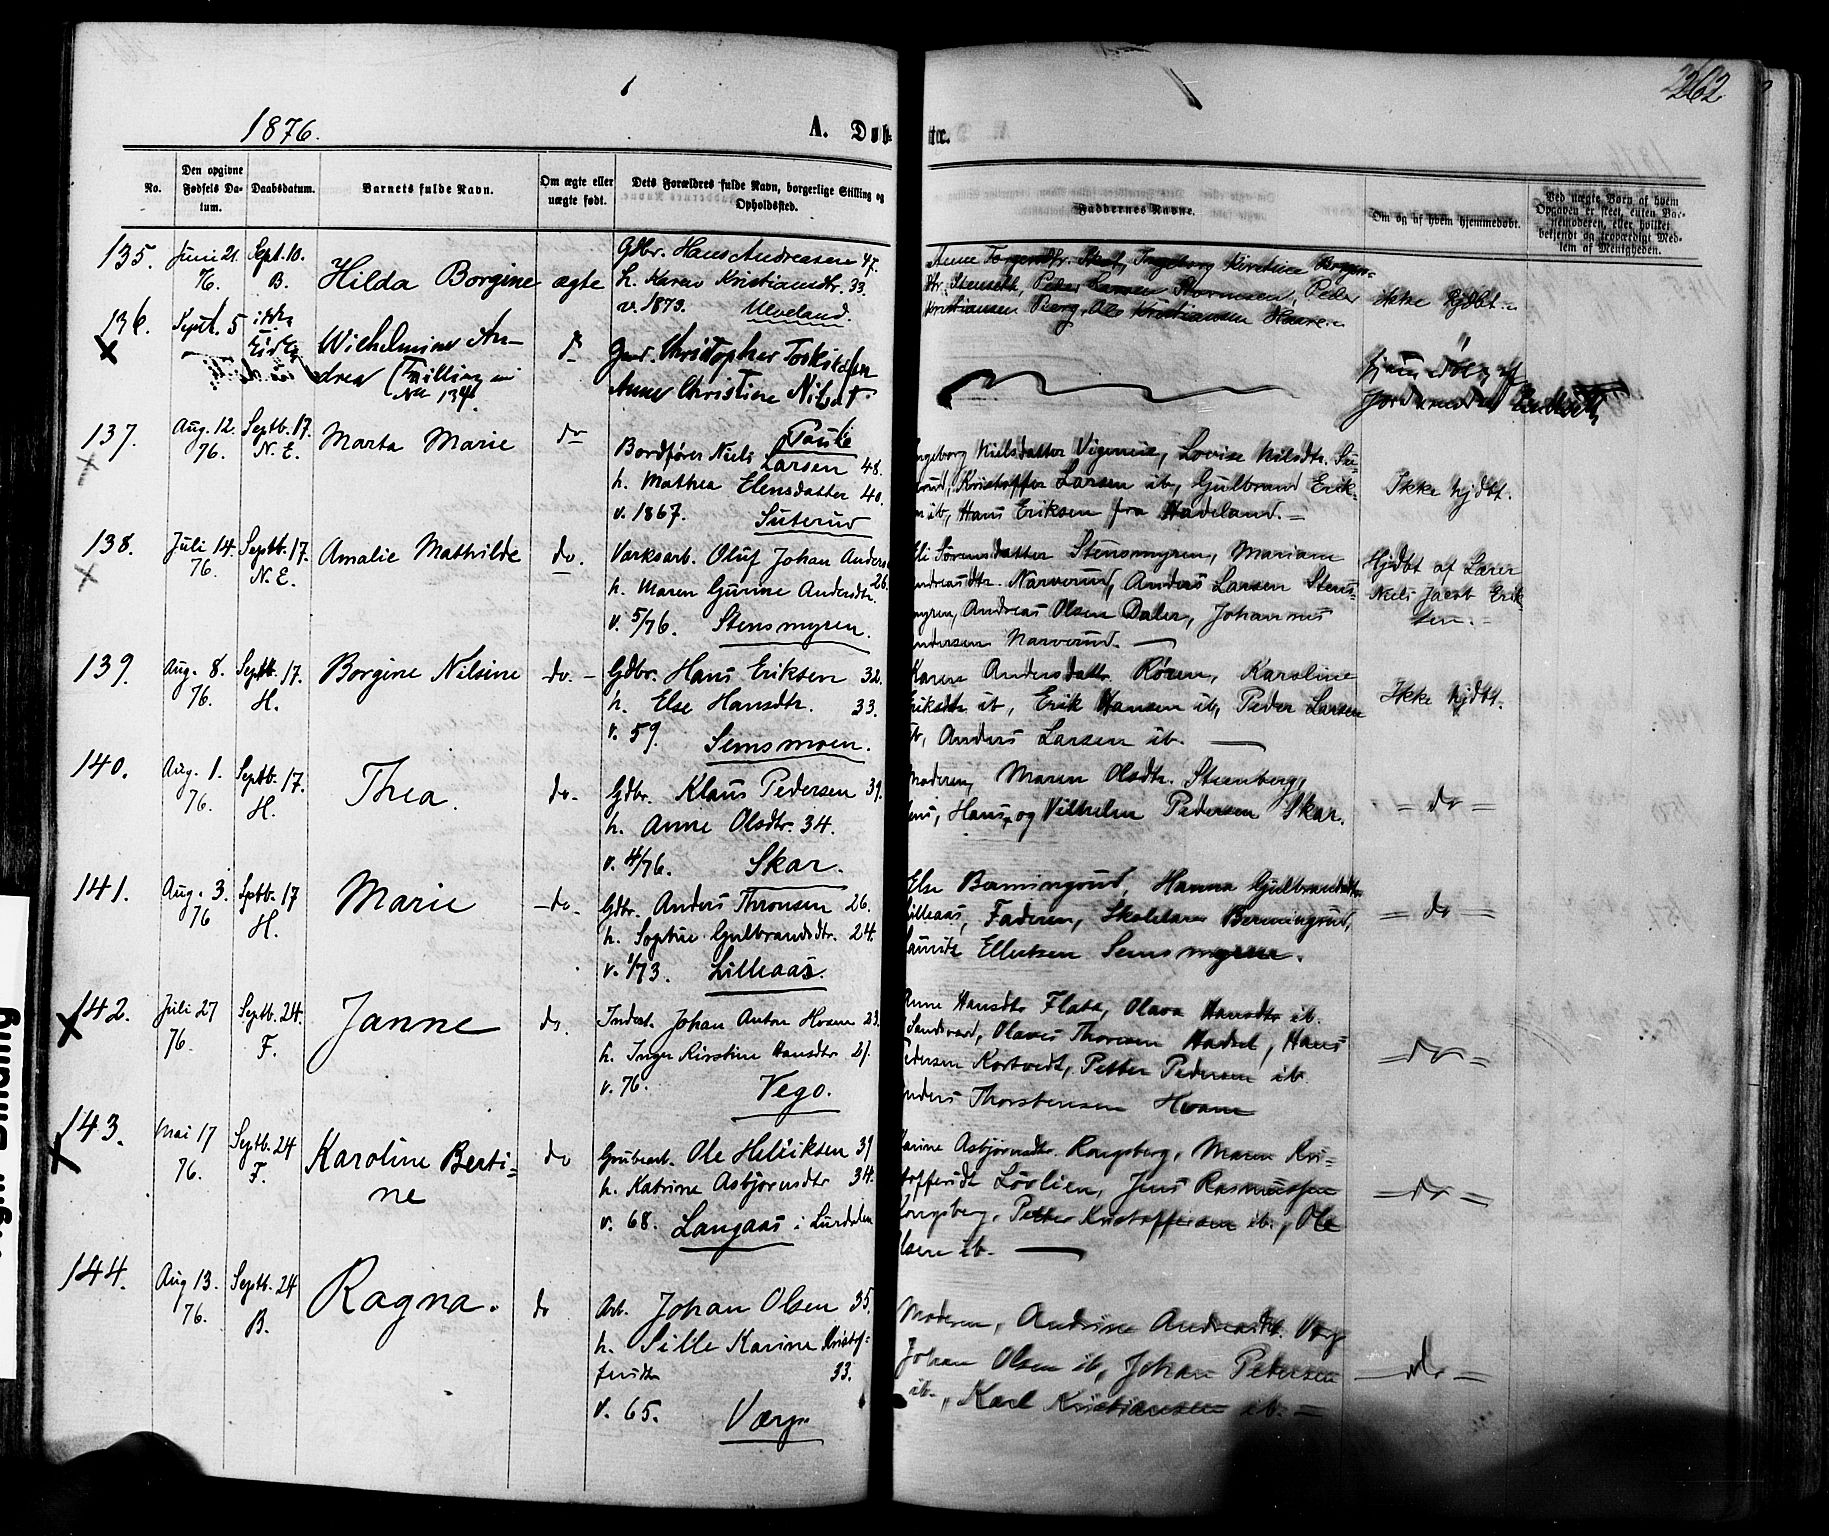 262
1876.
A. Døb
te.
No.
Den opgivne Fødsels Datum.
Daabsdatum.
Barnets fulde Navn.
Om ægte eller uægte født.
Dets Forældres fulde Navn, borgerlige Stilling og Opholdssted.
Faddernes Navne.
Om og af hvem hjemmedøbt.
Ved uægte Børn af hvem Opgaven er skeet, enten Barnemoderen, eller hvilket bekjendt og troværdigt Medlem af Menigheden.
135.
Juni 21. 76.
Sept. 10. B.
Hilda Borgine
ægte
Gdbr. Hans Andreasen 47.
h. Karen Kristiansdtr. 33.
v. 1873. Ulveland.
Stensett, Peder Larsen
Kristiansen Berg, Ole Kristiansen
ikke hjdbt.
136.
Septt. 5
Wilhelmine An-
drea (Tvilling
No 134.
do
Christopher
Anne Christine
137.
Aug. 12. 76.
Septb. 17. N. E.
Marta Marie
do
Bordfører Niels Larsen 48.
h. Mathea Elensdatter 40.
v. 1867. Suterud
ngeborg Nielsdatter Lovise Nilsdtr. Su-
rud, Kristoffer Larsen ib, Gulbrand Erik-
n ib, Hans Eriksen fra Hadeland.
Ikke hjdbt.
138.
Juli 14. 76.
Septb. 17. N. E.
Amalie Mathilde
do.
Værksarb. Oluf Johan Anders
26.
h. Maren Gurine Andersdtr.
v. 5/76. Stensmyren.
li Sørensdatter Stensmyren, Mariane
ndreasdtr. Narverud, Anders Larsen Stens-
myren, Andreas Olsen Daler, Johannes
ndersen Narverud.
Hjdbt af Lærer
Niels Jacob Erik
sen.
139.
Aug. 8. 76.
Septb. 17. H.
Borgine Nilsine
do.
Gdbr. Hans Eriksen 32.
h. Else Hansdtr. 33.
v. 59. Semsmoen.
Karen Andersdatt. Røren, Karoline
Eriksdtr ib, Erik Hansen ib, Peder Larsen
ib, Anders Larsen ib.
Ikke hjdbt.
140.
Aug. 1. 76.
Septb. 17. H.
Thea.
do.
Gdbr. Klaus Pedersen 39.
h. Anne Olsdtr. 34.
v. 4/76. Skar.
Moderen, Maren Olsdtr. Steenberg,
ens, Hans, og Vilhelm Pedersen Skar.
do
141.
Aug. 3. 76
Septb. 17 H.
Marie
do.
Gdbr. Anders Thronsen 26.
h. Sophie Gulbrandsdtr. 24.
v. 1/73. Lilleaas.
Else Bemingrud, Hanna Gulbrandsdtr
Lilleaas, Faderen, Skolelærer Bemingrud,
Ellertsen Semsmyren.
do
142.
Juli 27 76.
Septb. 24. F.
Janne
do.
Inderst. Johan Anton Hvam 23.
h. Inger Kirstine Hansdtr 21.
v. 76. Vego.
Anne Hansdtr Flata, Olava Hansdtr ib.
Olaves Thoresen Hadsel, Hans
Pedersen Kortvedt, Petter Pedersen ib
nders Thorstensen Hvam
do
143.
Mai 17 76.
Septb. 24 F.
Karoline Berti-
ne
do
Grubearb. Ole Helliksen 39
h. Katrine Asbjørnsdtr 34.
v. 68. Langaas i Lurdalen
Karine Asbjørnsdtr Kongsberg, Maren Kri-
stoffersdt Løvlien, Jens Rasmussen
Kongsberg, Petter Kristoffersen ib., Ole
lsen ib.
do
144.
Aug 13. 76.
Septb. 24 B.
Ragna.
do
Arb. Johan Olsen 35.
h. Sille Karine Kristof-
fersdtr 33.
v. 65. Værp
Moderen, Andrine Andreasdt. Værp
Johan Olsen ib, Johan Petersen
ib., Karl Kristiansen ib.
do